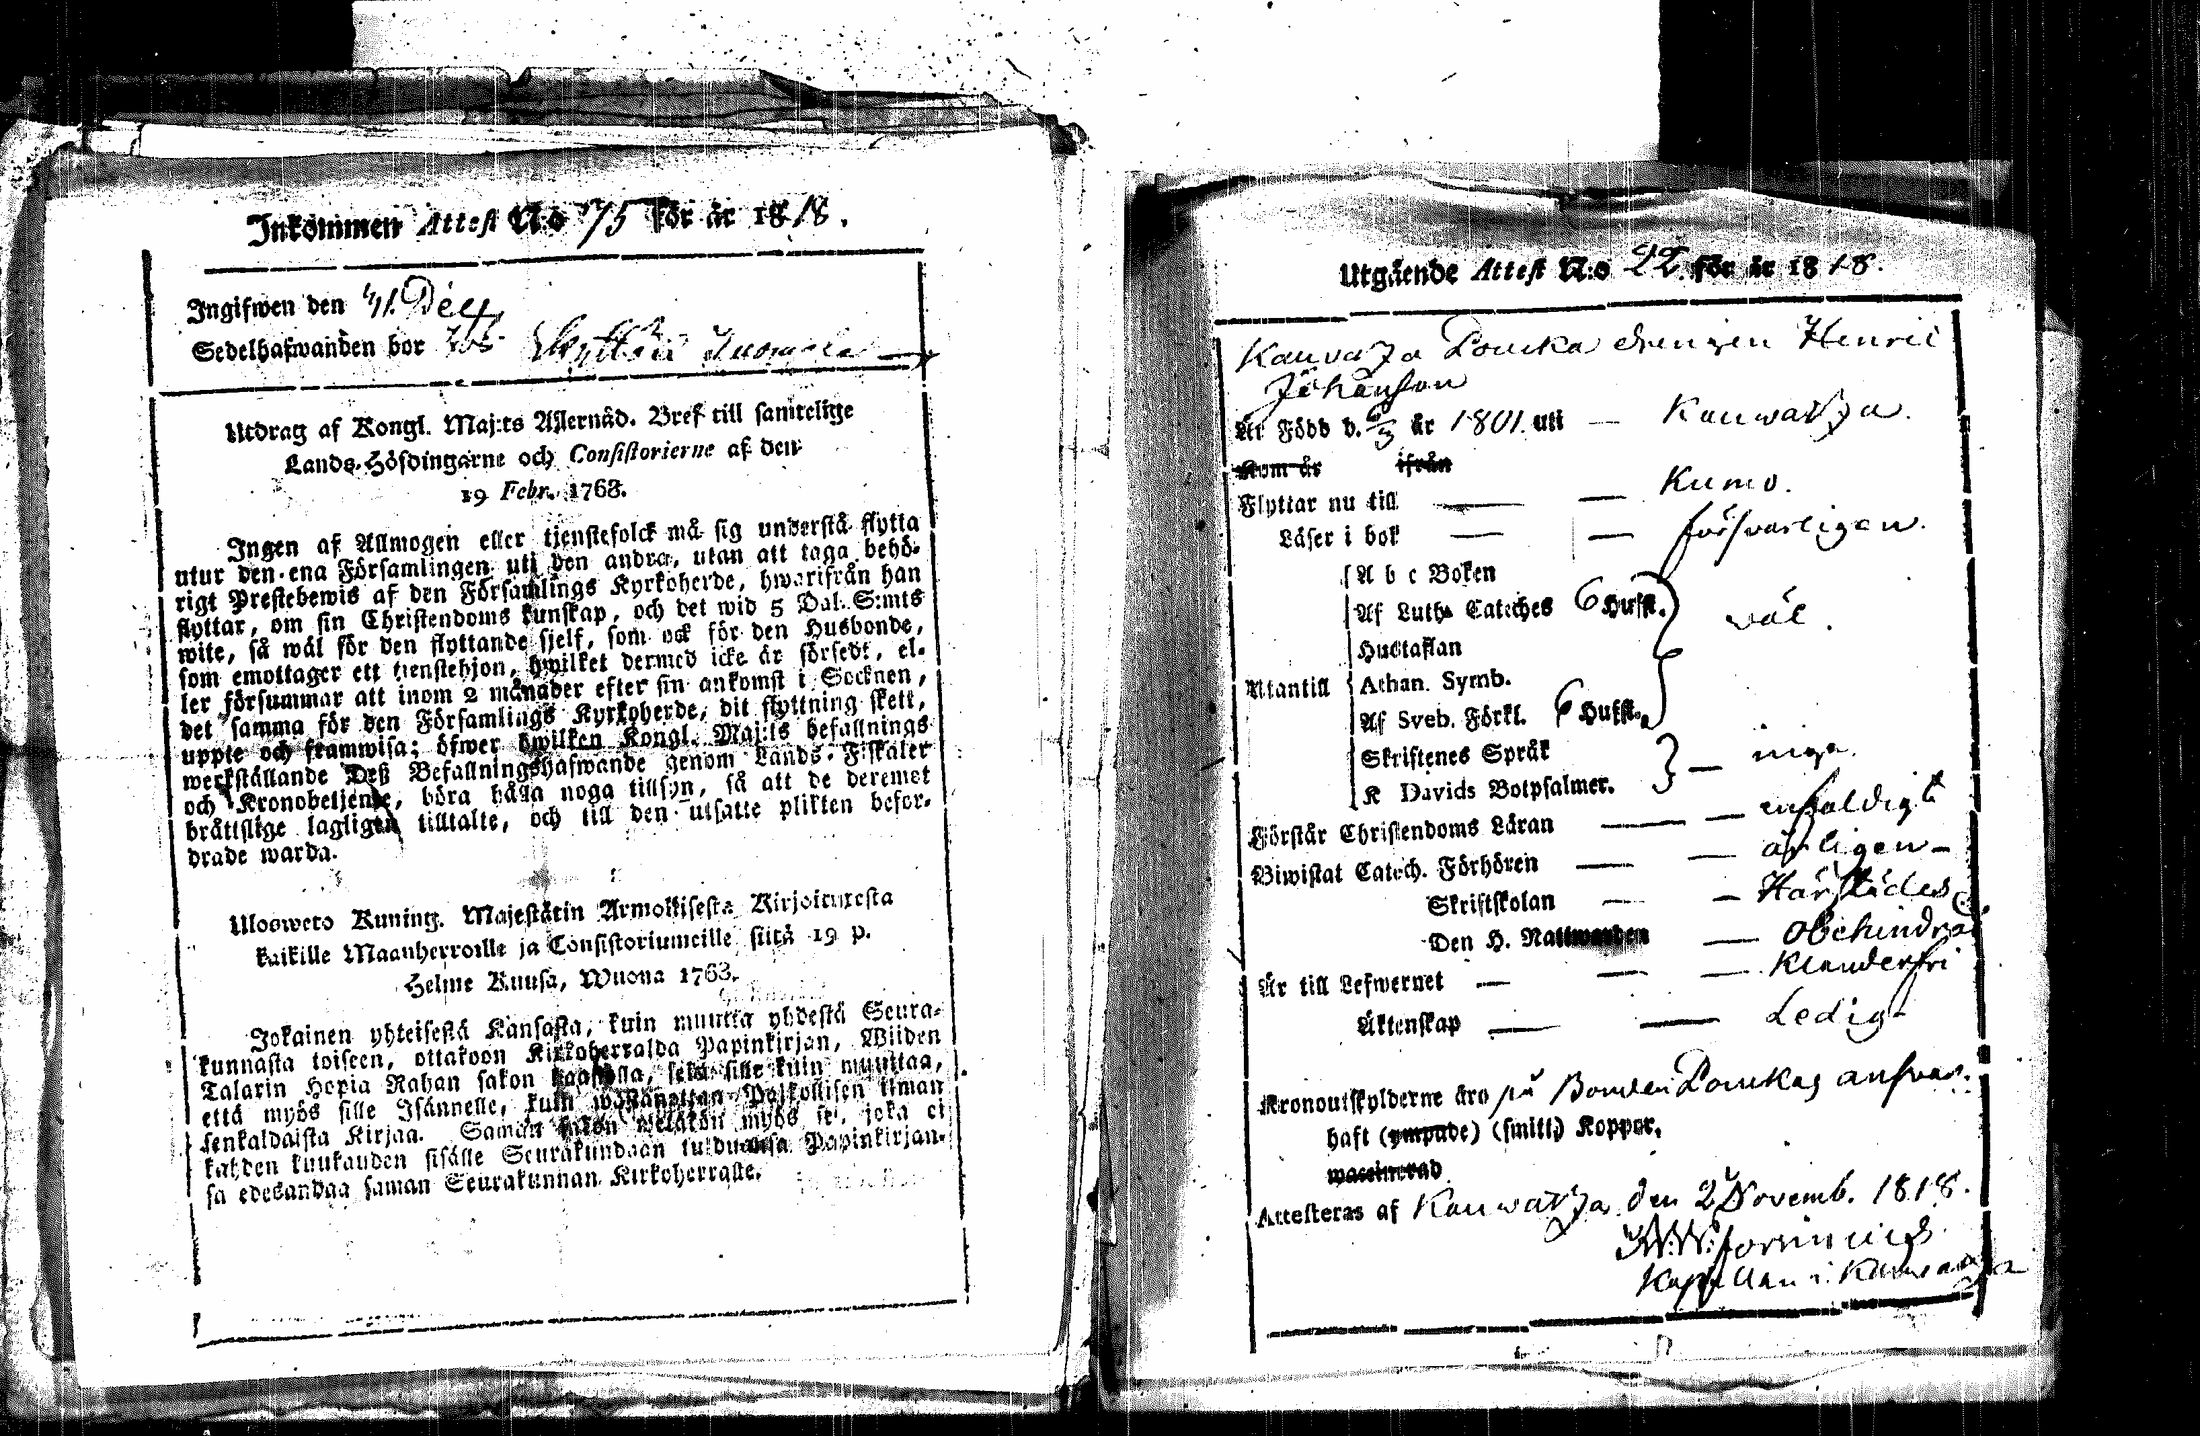 Inkommen Attest N:o 75 för år 1818.
Ingifwen den 4/1. Dec.
Sedelhafwanden bor hos Skyttän Juomala
Utdrag af Kongl. Maj:ts Allernåd. Bref till samtelige
Lands-Höfdingarne och Consistorierne af den
19 Febr. 1763.
Ingen af Allmogen eller tjenstefolck må sig understå flytta
utur den ena Församlingen uti den andra, utan att taga behö-
rigt Prestebewis af den Församlings Kyrkoherde, hwarifrån han
flyttar, om sin Christendoms kunskap, och det wid 5 Dal. S:mts
wite, så wäl för den flyttande sjelf, som ock för den Husbonde,
som emottager ett tjenstehjon, hwilket dermed icke är försedt, el-
ler försummar att inom 2 månader efter sin ankomst i Socknen,
det samma för den Församlings Kyrkoherde, dit flyttning skett,
uppte och framwisa; öfwer hwilken Kongl. Maj:ts befallnings
werkställande Deß Befallningshafwande genom Lands-Fiskaler
och Kronobetjente, böra hålla noga tillsyn, så att de deremot
bråttslige lagligen tilltalte, och till den utsatte plikten befor-
drade warda.
Ulosweto Kuning. Majestätin Armollisesta Kirjoituxesta
kaikille Maanherroille ja Consistoriumeille siitä 19 p.
Helme Kuusa, Wuona 1763.
Jokainen yhteisestä Kansasta, kuin muutta yhdestä Seura-
kunnasta toiseen, ottakoon Kirkoherralda Papinkirjan, Wiiden
Talarin Hopia Rahan sakon haastolla, sekä sille kuin muuttaa,
että myös sille Isännelle, kuin Palkollisen ilman
senkaldaista Kirjaa. Saman sakon wetäkön myös se, joka ei
kahden kuukauden sisälle Seurakundaan tulduansa Papinkirjan-
sa edesandaa saman Seurakunnan Kirkoherralle.
Utgående Attest N:o 22. för år 1818.
Kauvatza Loucka drengen Henric
Johansson
Är Född d. 6/3 år 1801. uti — Kauwatza.
Kom år ifrån
Flyttar nu till — — Kumo.
Läser i bok — — försvarligen.
A b c Boken
Af Luth. Cateches 6 Hufst. väl.
Hustaflan
Utantill Athan. Symb.
Af Sveb. Förkl. 6 Hufst.
Skriftenes Språk
K Davids Botpsalmer. — inga.
Förstår Christendoms Läran — — enfaldigt
Biwistat Catech. Förhören — — årligen —
Skriftskolan — — Härstädes
Den H. Nattwarden — Obehindrad
Är till Lefwernet — — — Klanderfri
Äktenskap — — Ledig
Kronoutskylderne äro på Bonden Louckas answar.
haft (ympade) (smitt) Koppor,
waccinerad
Attesteras af Kauwatza den 2 Novemb. 1818.
Kapellan i Kauwatza